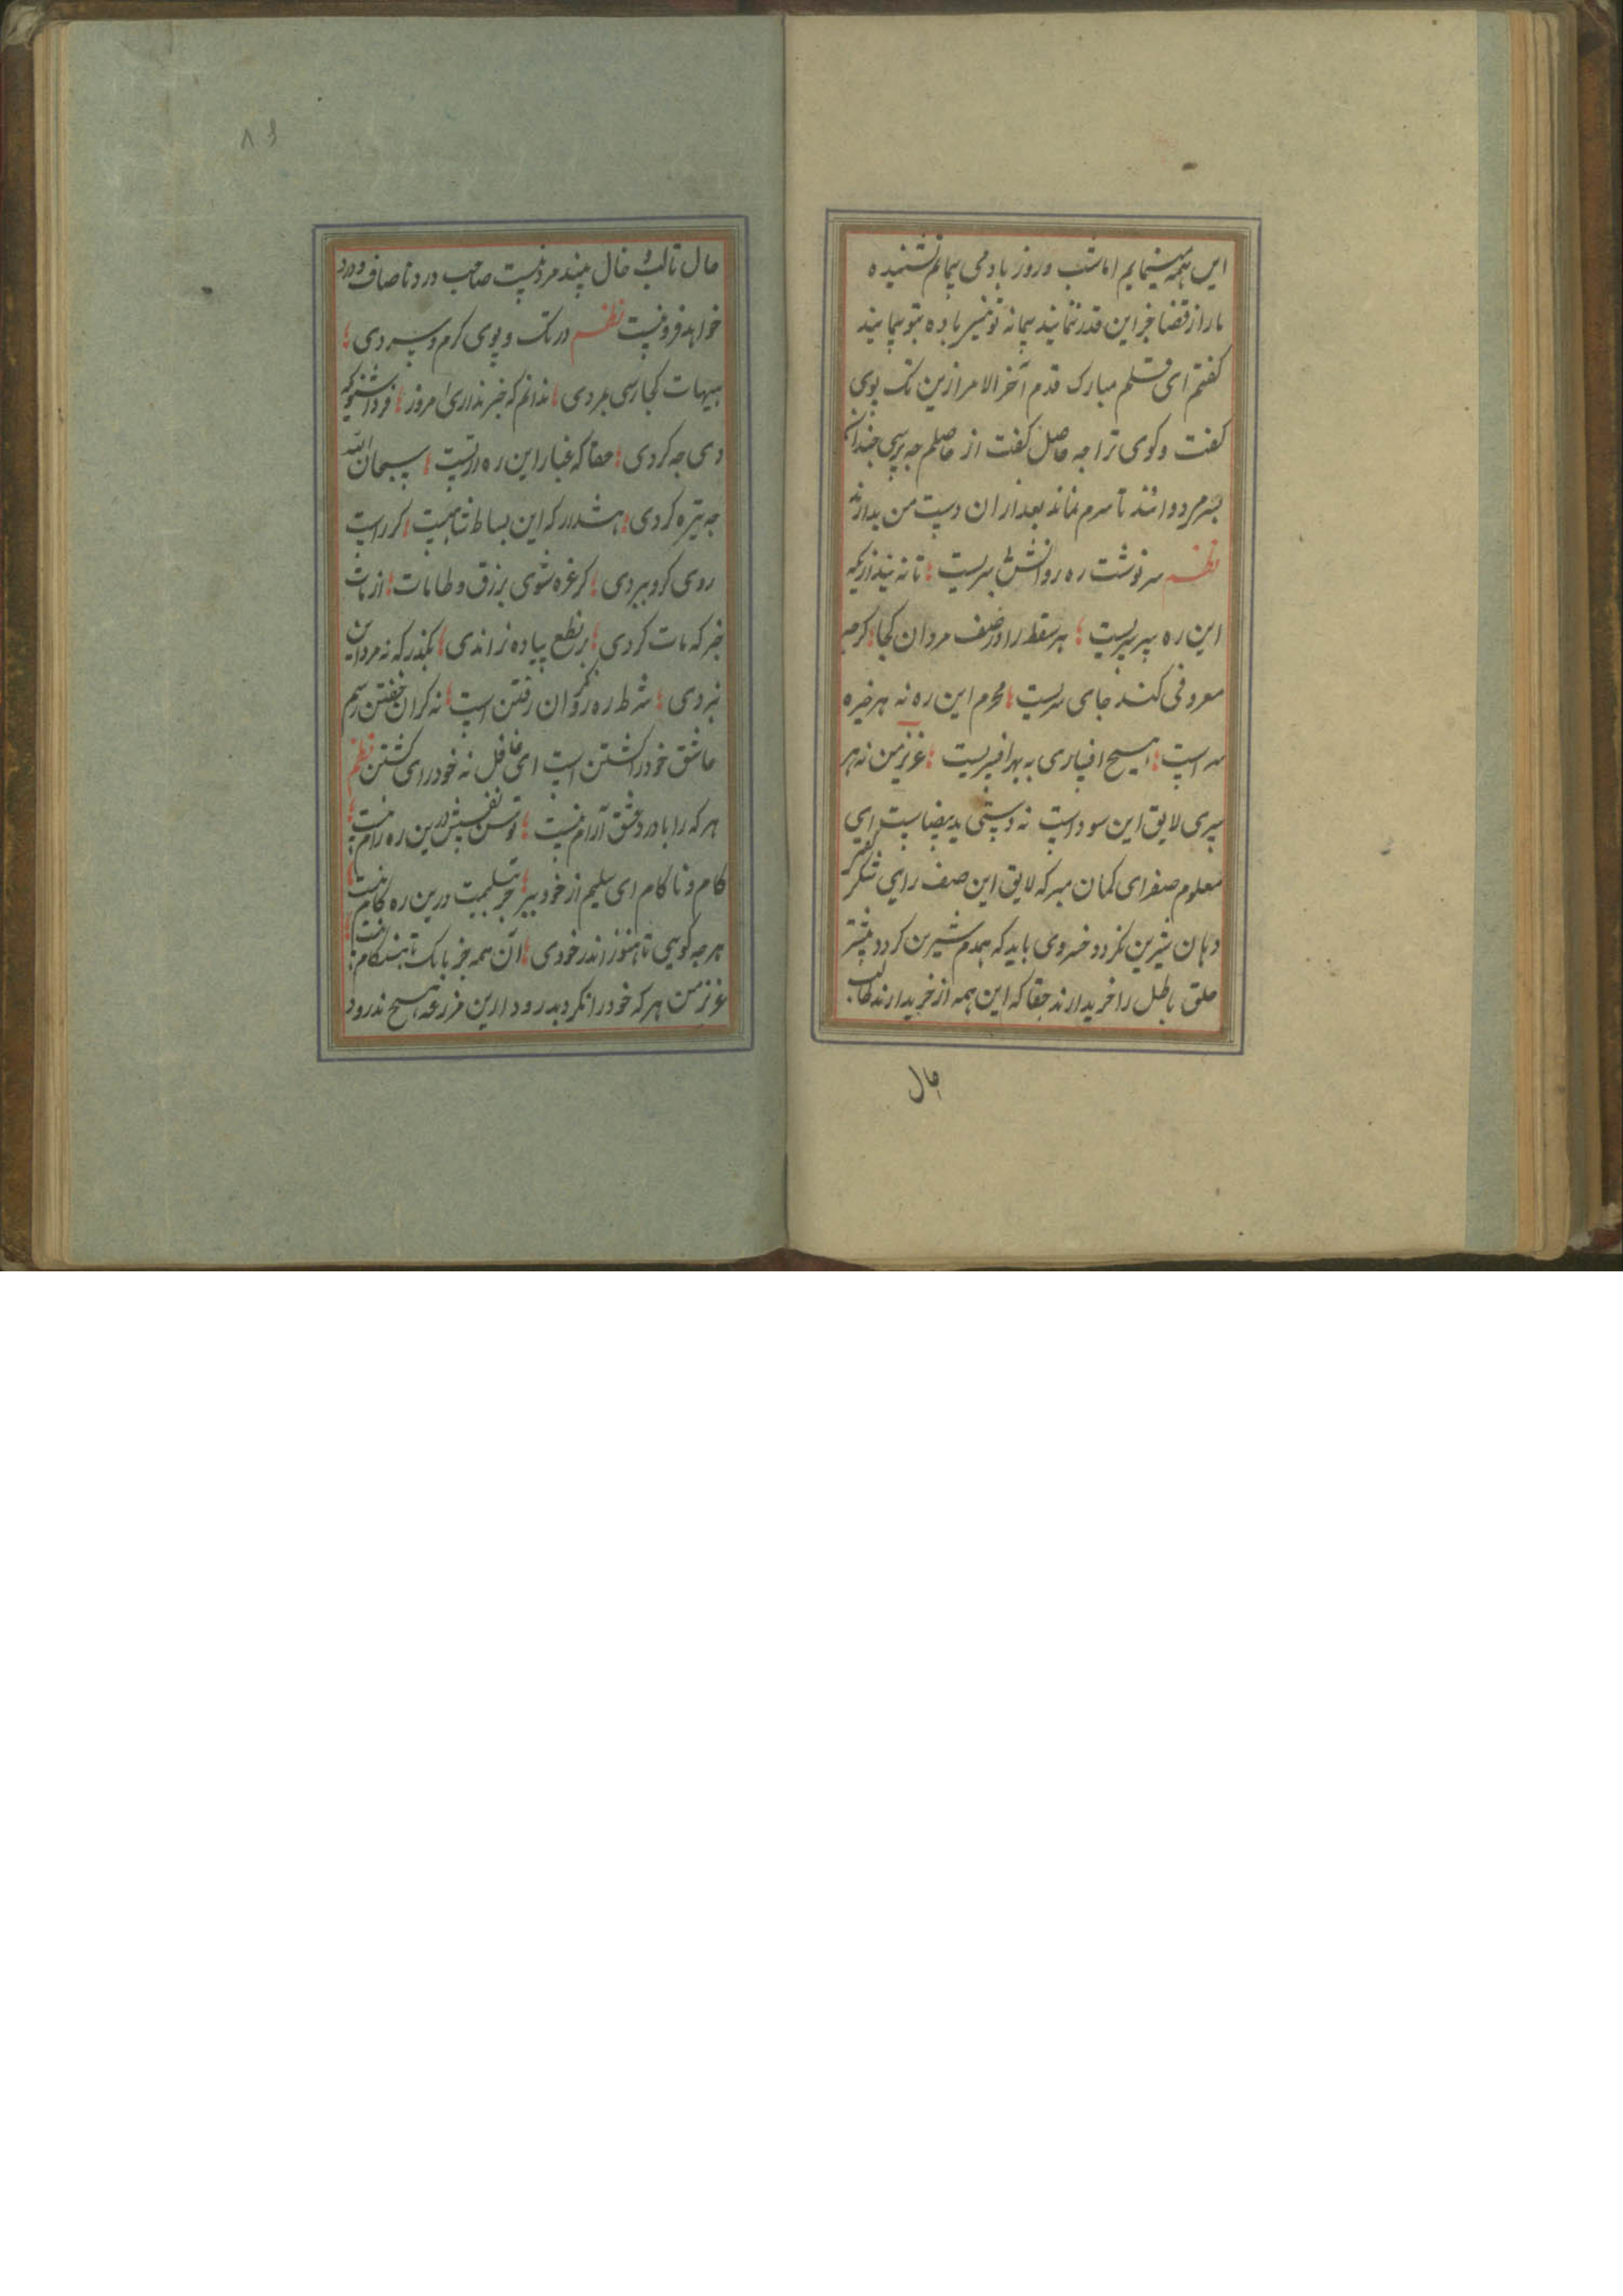 این همه مینمایم اما شب و روز باد می پیمایم نشنیده
ما را از قضا جز این قدر ننمایند پیمانه تو نیز باده بتو پیمایند
گفتم ای قلم مبارک قدم آخر الامر ازین تک بوی
گفت و کوی ترا چه حاصل گفت از حاصلم چه پرسی چندان
بسرم دوانند تا سرم نماند بعد از ان دست من بدارند
نظم سرنوشت ره روانش بر سریست ؛ تا نه پنداری که
این ره سرسریست ؛ هر سقط را در صف مردان کجا ؛ کر چه
معروفی کند جای سریست ؛ محرم این ره نه هر خیره
سر است ؛ هیچ اخباری به بهر افسریست ؛ عزیز من نه هر
سری لایق این سوداست نه دستی ید بیضاست ای
معلوم صفرای کمان مبر که لایق این صف رایی شکر
دهان شیرین نکردد خسروی باید که همدم شیرین کردد بیشتر
خلق باطل را خریدارند حقا که این همه از خر بدارند طالب
حال
۸۶
حال تا لب و خال بیند مرد نیست صاحب درد تا صاف و درد
خواهد فرو نیست نظم در تک و پوی کرم و سردی ؛
هیهات کجا رسی بمردی ؛ ندانم که خبر نداری امروز ؛ فردا شنوی که
دی چه کردی ؛ حقا که غبار این ره از تست ؛ سبحان الله
چه تیره کردی ؛ هشدار که این بساط شاهیست ؛ کر راست
روی کرو ببردی ؛ کر غره شوی بزرق و طامات ؛ از مات
خبر که مات کردی ؛ بر نطع پیاده نراندی ؛ بگذر که نه مرد این
نبردی ؛ شرط ره روان رفتن است ؛ نه کران خفتن رسم
عاشق خود را کشتن است ای غافل نه خودرای کشتن نظم
هر که را با درد عشق آرام نیست ؛ توسن نفسش درین ره رام نیست ؛
کام و ناکام ای سلیم از خود ببر ؛ جز سلیمیت درین ره کام نیست ؛
هرچه کویی تا هنوز اندر خودی ؛ آن همه جز بانک نابهنکام نیست ؛
عزیز من هر که خود را نکرد بدرود از این مزرعه هیچ ندرود